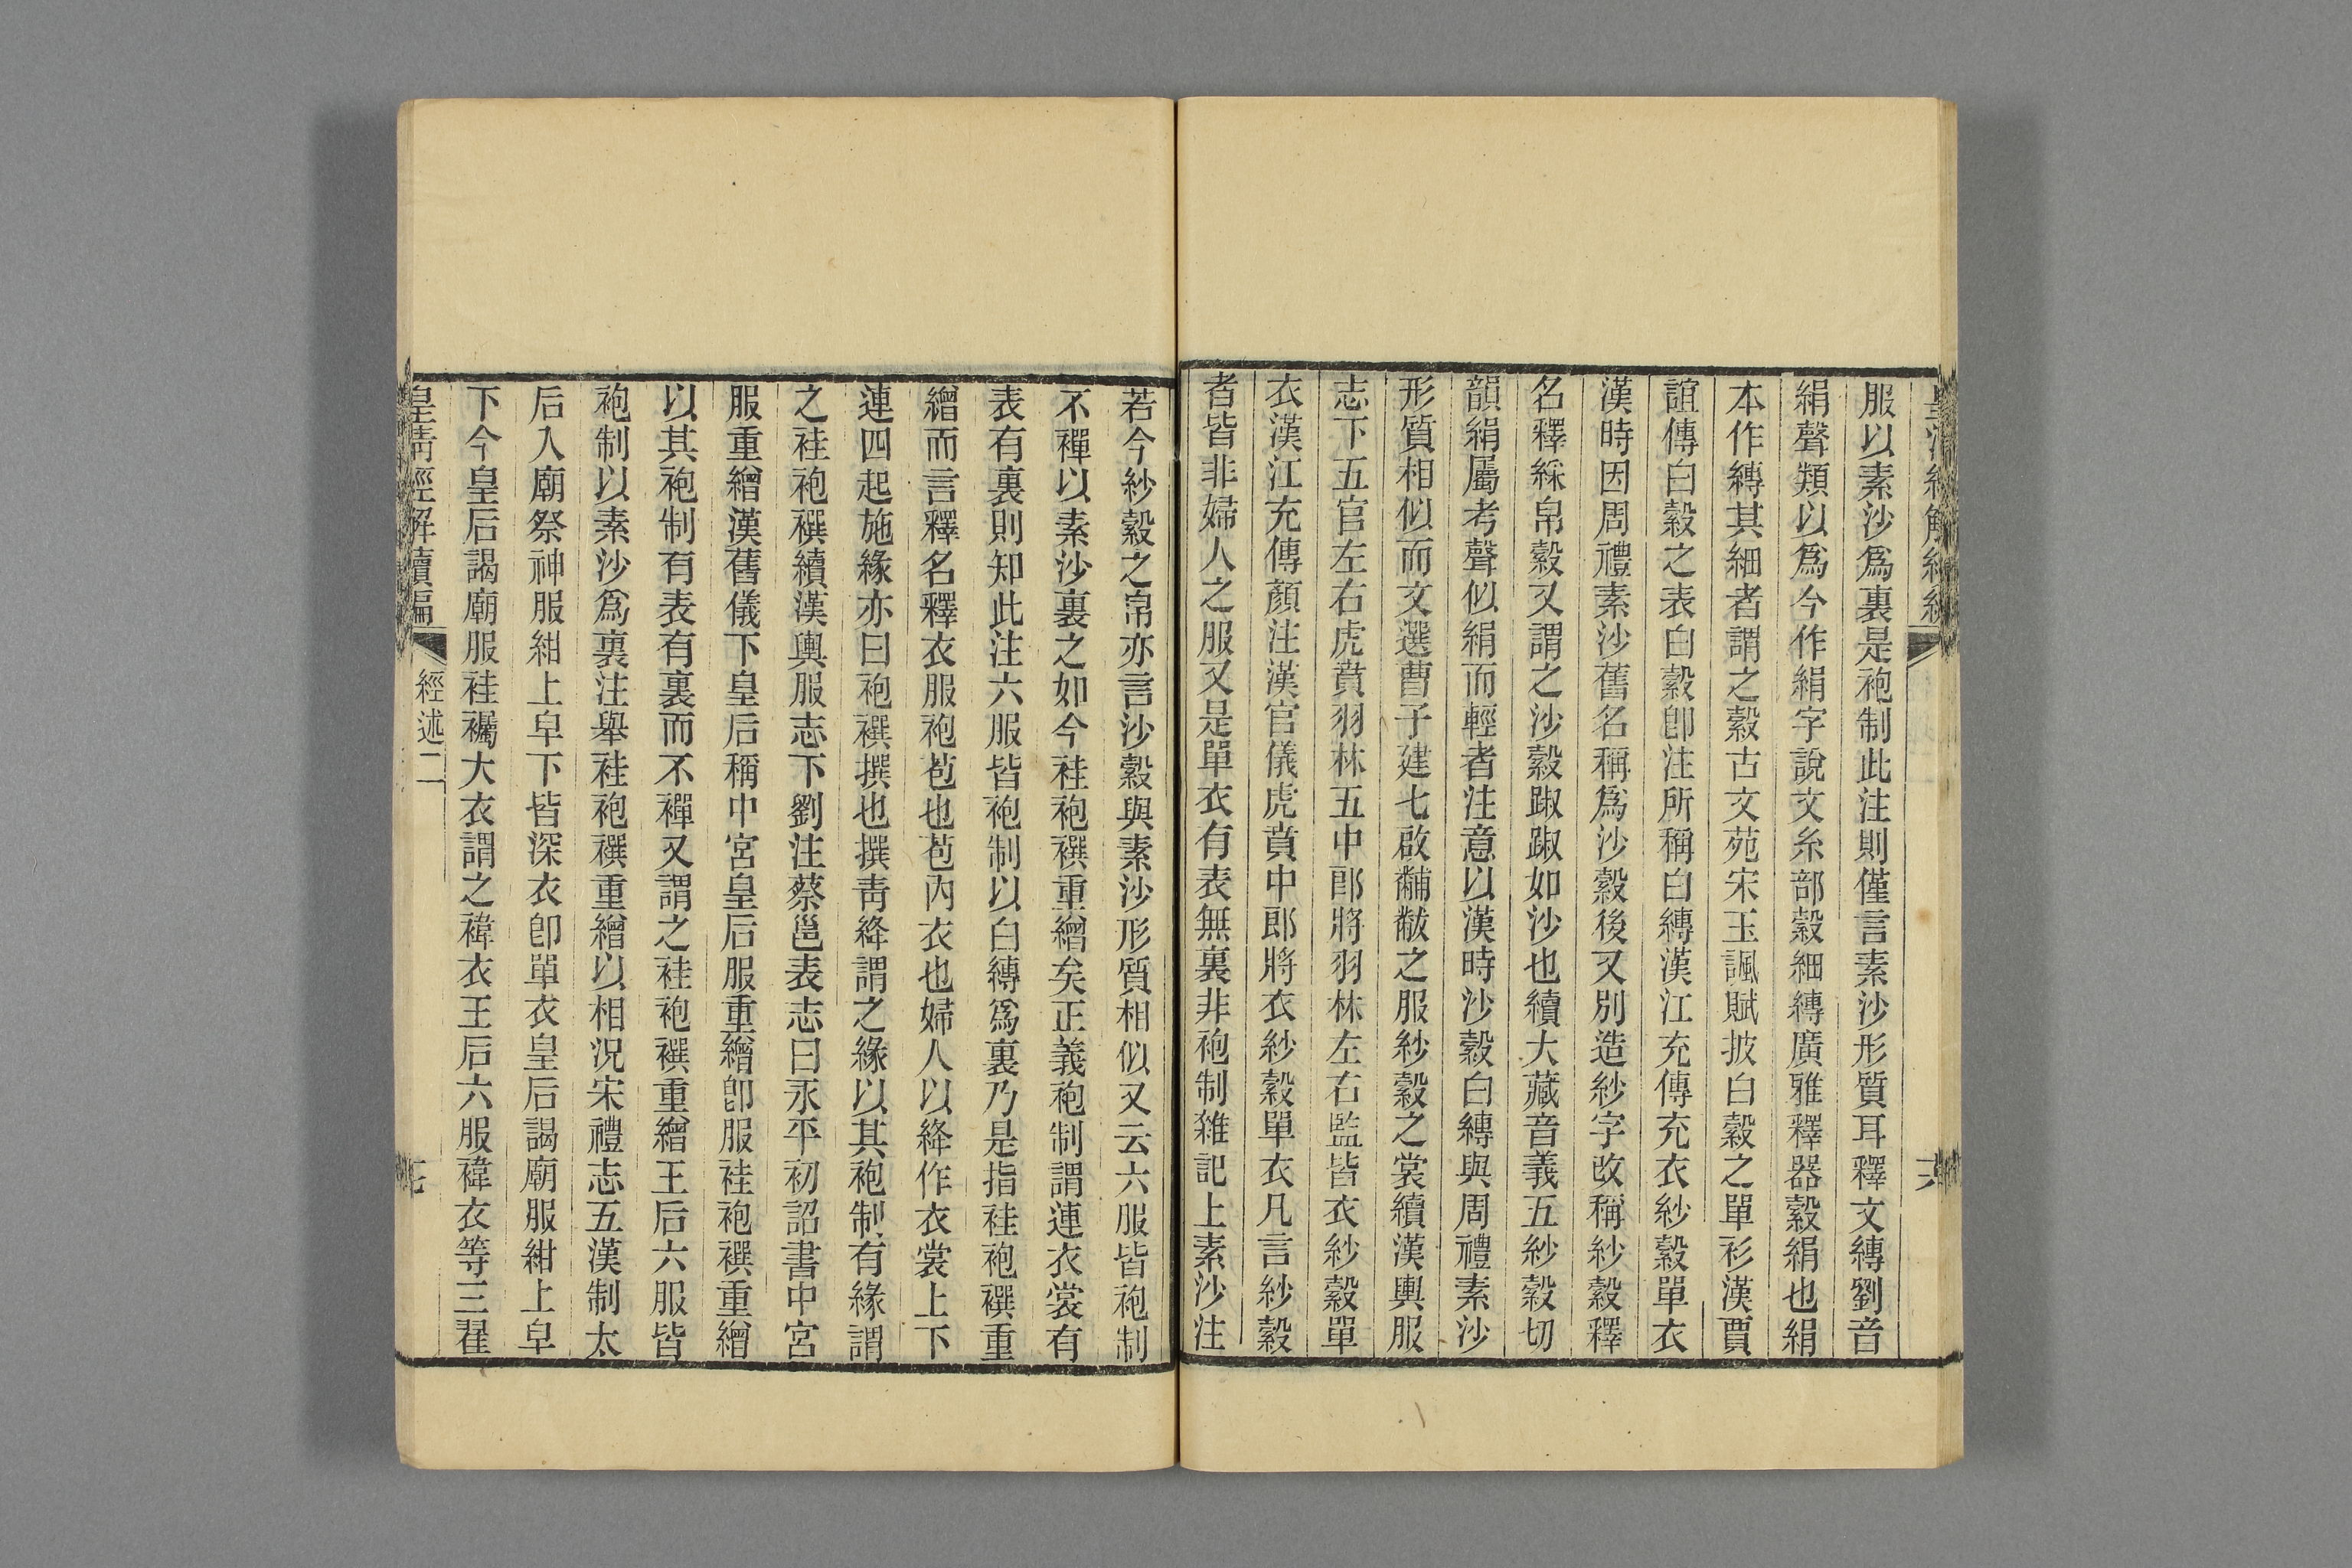 服以素沙爲裏是袍制此注則僅言素沙形質耳釋文縳劉音
絹聲類以爲今作絹字說文糸部縠細縳廣雅釋器縠絹也絹
本作縳其細者謂之縠古文苑宋玉諷賦披白縠之單衫漢賈
誼傳白縠之表白縠卽注所稱白縳漢江充傳充衣紗縠單衣
漢時因周禮素沙舊名稱爲沙縠後又別造紗字改稱紗縠釋
名釋綵帛縠又謂之沙縠踧踧如沙也續大藏音義五紗縠切
韻絹屬考聲似絹而輕者注意以漢時沙縠白縳與周禮素沙
形質相似而文選曹子建七啟黼黻之服紗縠之裳續漢輿服
志下五官左右虎賁羽林五中郎將羽林左右監皆衣紗縠單
衣漢江充傳顏注漢官儀虎賁中郎將衣紗縠單衣凡言紗縠
者皆非婦人之服又是單衣有表無裏非袍制雜記上素沙注
若今紗縠之帛亦言沙縠與素沙形質相似又云六服皆袍制
不襌以素沙裏之如今袿袍襈重繒矣正義袍制謂連衣裳有
表有裏則知此注六服皆袍制以白縳爲裏乃是指袿袍襈重
繒而言釋名釋衣服袍苞也苞內衣也婦人以絳作衣裳上下
連四起施緣亦曰袍襈撰也撰青絳謂之緣以其袍制有緣謂
之袿袍襈續漢輿服志下劉注蔡邕表志曰永平初詔書中宮
服重繒漢舊儀下皇后稱中宮皇后服重繒卽服袿袍襈重繒
以其袍制有表有裏而不襌又謂之袿袍襈重繒王后六服皆
袍制以素沙爲裏注舉袿袍襈重繒以相況宋禮志五漢制太
后入廟祭神服紺上皁下皆深衣卽單衣皇后謁廟服紺上皁
下今皇后謁廟服袿襡大衣謂之褘衣王后六服褘衣等三翟
皇清經解續編
經述二